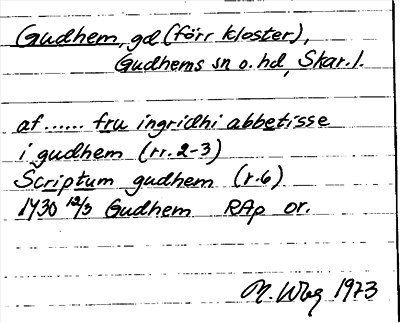 Gudhem, gd (förr kloster),
Gudhems sn o. hd, Skar. l.
af ...... fru ingridhi abbetisse
i gudhem (rr. 2-3)
Scriptum gudhem (r. 6)
1430 12/3 Gudhem RAp or.
M. Wbg 1973